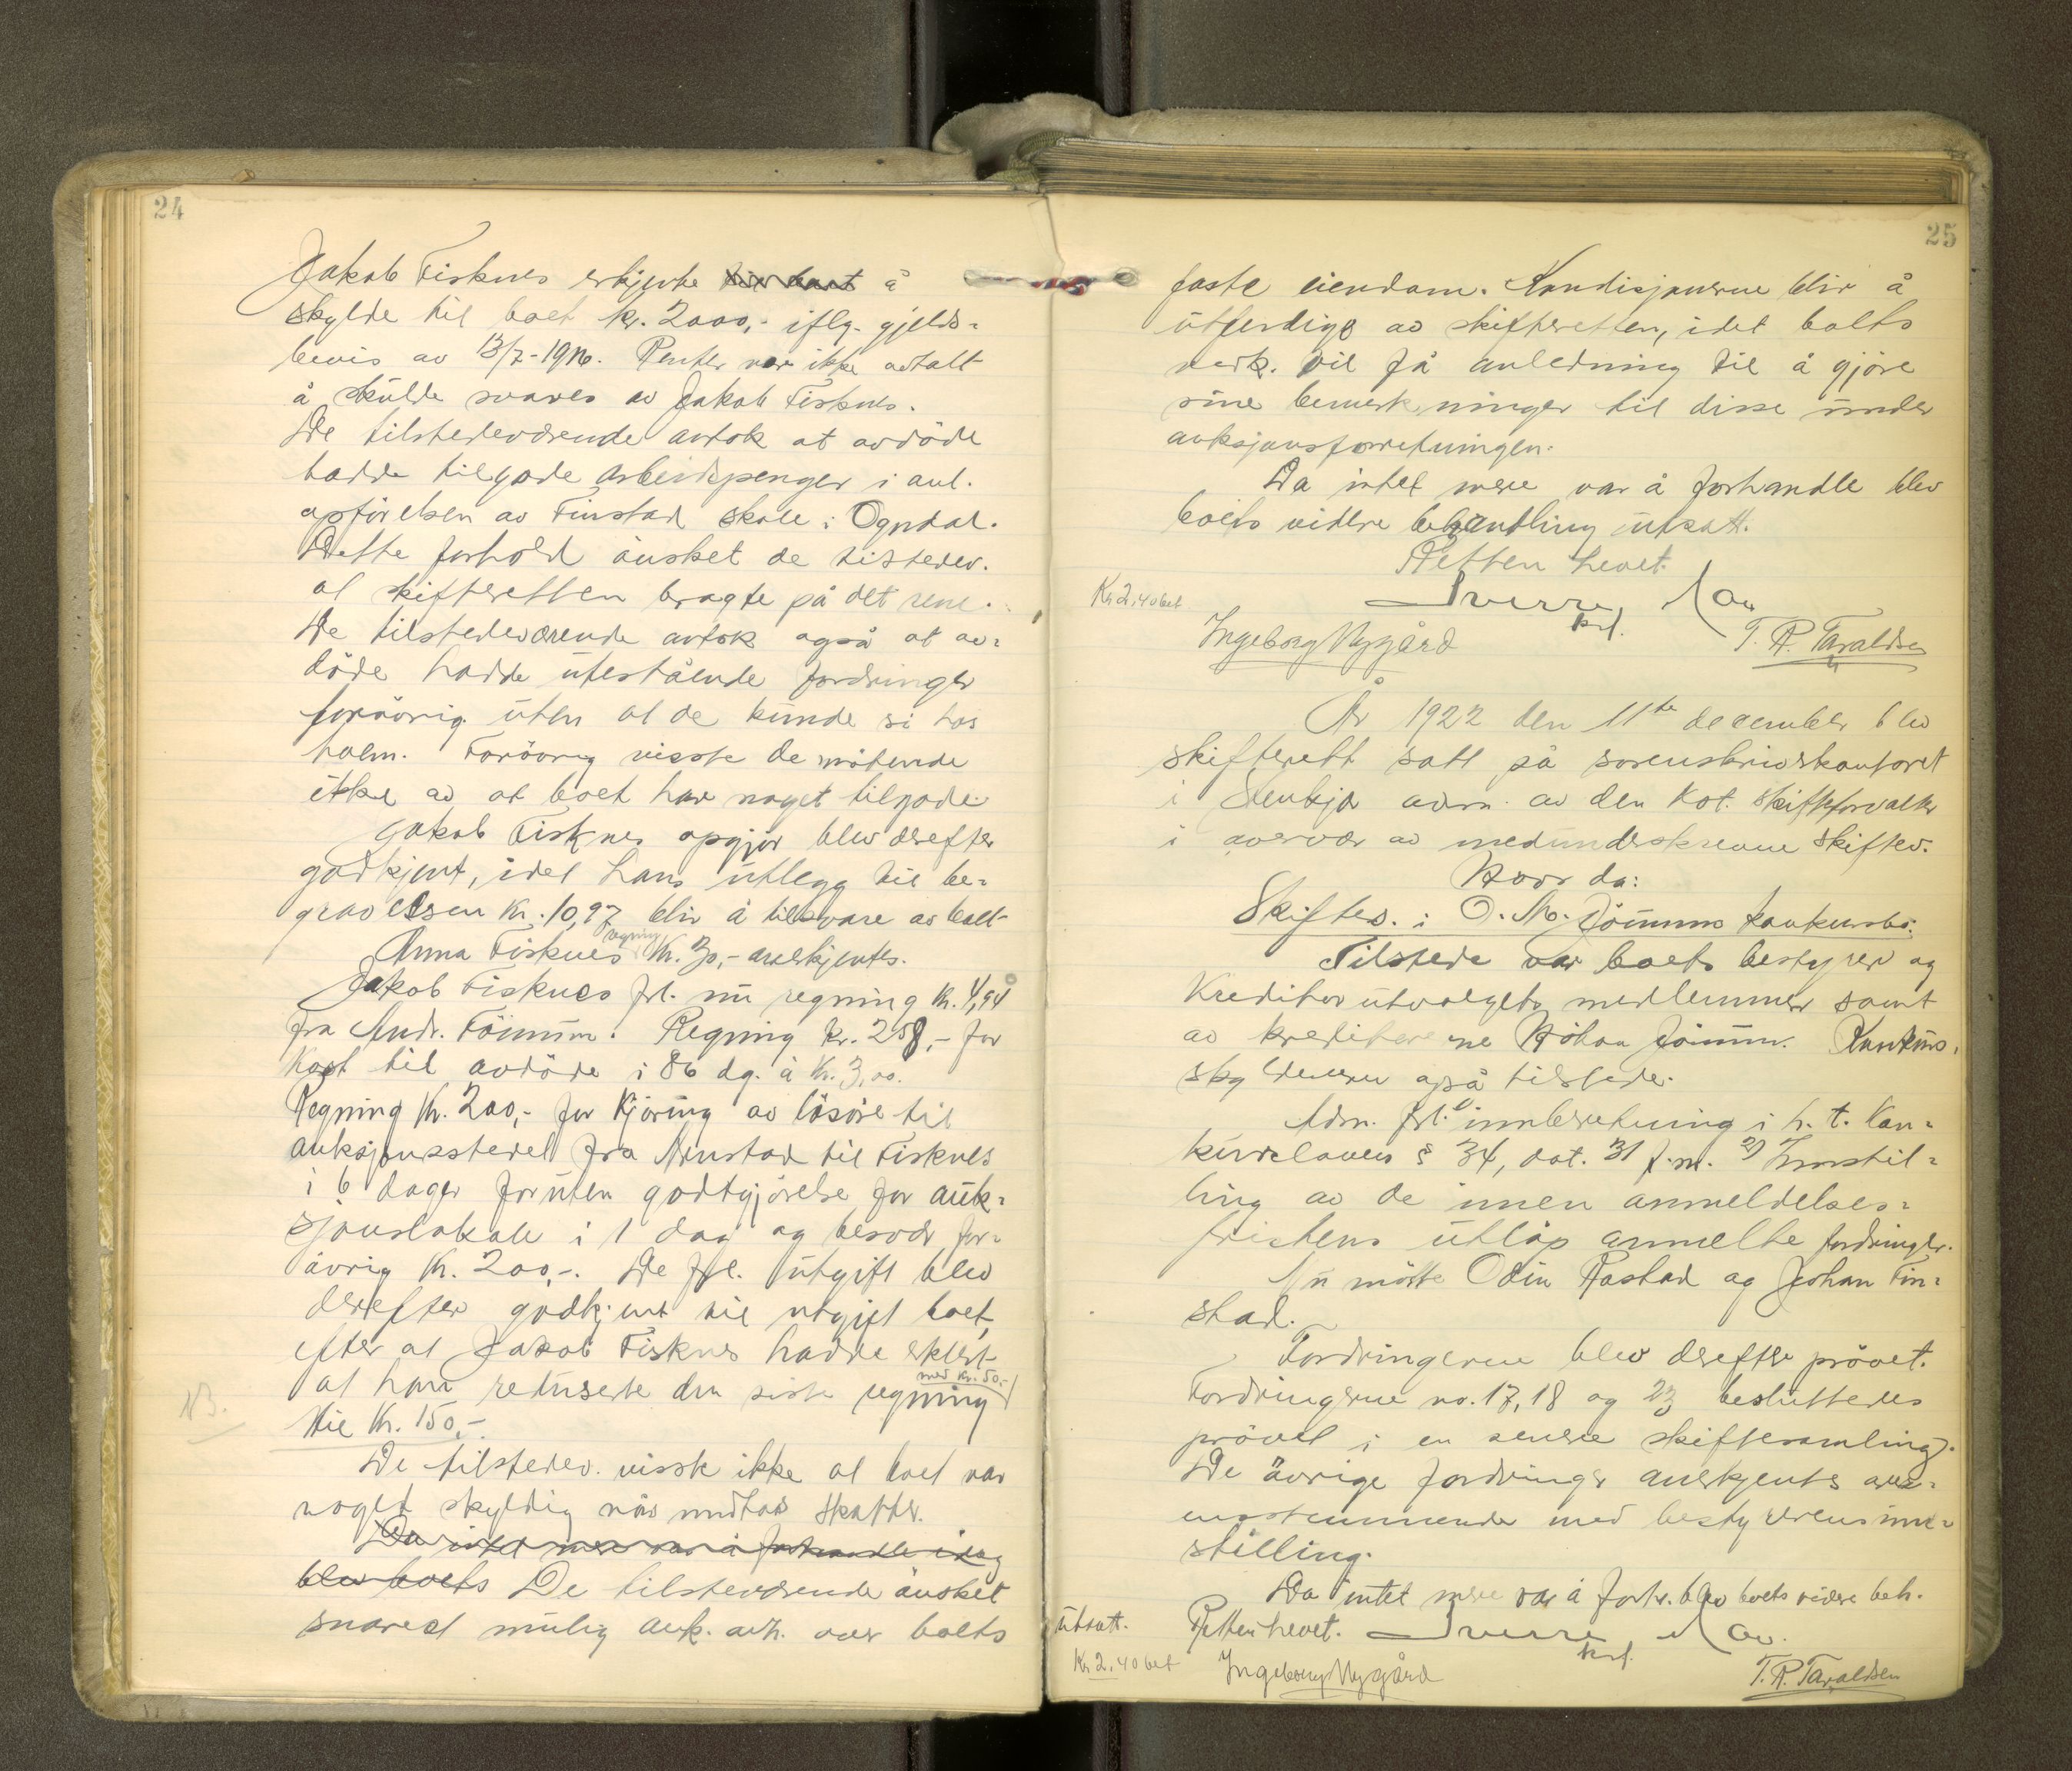 24
Jakob Fisknes erkjente å
skylde til boet kr. 2000,- iflg. gjelds-
bevis av 13/7-1916. Renter var ikke avtalt
å skulde svares av Jakob Fisknes.
De tilstedeværende antok at avdöde
hadde tilgode arbeidspenger i anl.
opförelsen av Finstad skole i Ogndal.
Dette forhold önsket de tilstedev.
at skifteretten bragte på det rene.
De tilstedeværende antok også at av-
döde hadde utestående fordringer
forövrig uten at de kunde si hos
hvem. Forövrig visste de mötende
ikke av at boet har noget tilgode.
Jakob Fisknes opgjör blev derefter
godkjent, idet hans utlegg til be-
gravelsen kr. 10,97 blir å tilsvare av boet
Anna Fisknes regning kr. 30,- anerkjentes.
Jakob Fisknes frl. nu regning kr. 4,94
fra Andr. Regning kr. 258,- for
kost til avdöde i 86 dg. à kr. 3,00.
Regning kr. 200,- for kjöring av lösöre til
auksjonsstedet fra til Fisknes
i 6 dager foruten godtgjörelse for auk-
sjonslokale i 1 dag og besvær for-
övrig kr. 200,-. De frl. utgift blev
derefter godkjent til utgift boet,
efter at Jakob Fisknes hadde erklært
at han reduserte den siste regning med kr. 50,-
NB. til kr. 150,-
De tilstedev. visste ikke at boet var
noget skyldig når undtas skatter.
Da intet mere var å forhandle idag
blev boets De tilstedeværende önsket
snarest mulig auk. avh. over boets
25
faste eiendom. Kondisjonerne blir å
utferdige av skifteretten, idet boets
vedk. vil få anledning til å gjöre
sine bemerkninger til disse under
auksjonsforretningen.
Da intet mere var å forhandle blev
boets videre behandling utsatt.
Retten hevet.
Kr. 2,40 bet. Sverre
kst.
Ingeborg Nygård T. R. Taraldsen
År 1922 den 11te december blev
skifterett satt på sorenskriverkontoret
i Stenkjær adm. av den kst. skifteforvalter
i overvær av medunderskrevne skiftev.
Hvor da:
Skiftes. i O. M. Jömnes konkursbo.
Tilstede var boets bestyrer og
kreditorutvalgets medlemmer samt
av kreditorerne Håkon Konkurs-
skyldneren også tilstede.
Adm. frl. 1) innberetning i h. t. kon-
kurslovens § 34, dat. 31 f.m. 2) Innstil-
ling av de innen anmeldelses-
fristens utlöp anmelte fordringer.
Nu mötte Odin Rostad og Johan Fin-
stad.
Fordringerne blev derefter prövet.
Fordringerne no. 17, 18 og 23 besluttedes
prövet i en senere skiftesamling.
De övrige fordringer anerkjentes over-
ensstemmende med bestyrerens inn-
stilling.
Da intet mere var å forh. blev boets videre beh.
utsatt. Retten hevet. Sverre
kst.
Kr. 2,40 bet Ingeborg Nygård T. R. Taraldsen